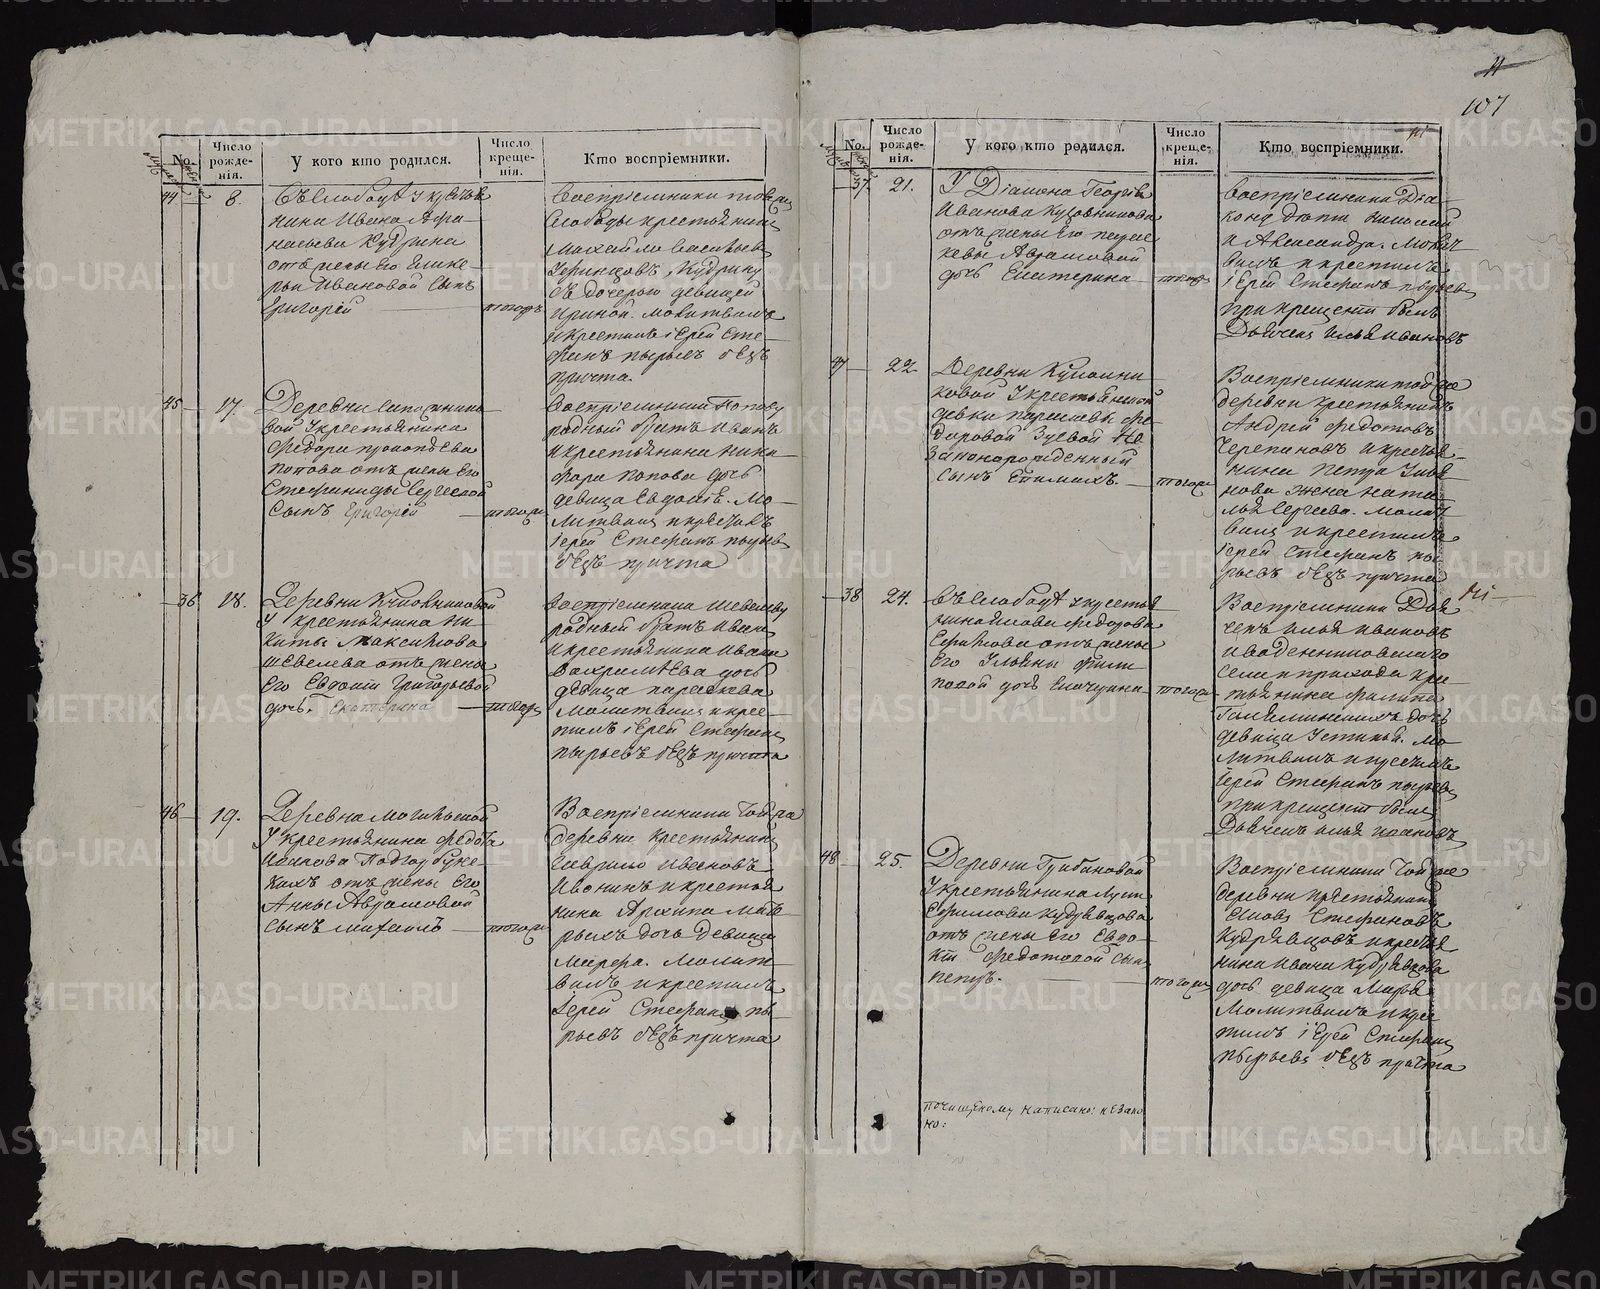 11
107
No.
Число рожденія.
У кого кто родился.
Число крещенія.
Кто воспріемники.
44
8.
Въ слободѣ у крестья
нина Ивана Афа
насьева Кудрина
отъ жены его Глике
рьи Ивановой сынъ
Григорій
тогожъ
Воспріемники тояжъ
слободы крестьянинъ
Михайло Васильевъ
съ дочерью девицей
Ириной. Молитвилъ
и крестилъ іерей Сте
фанъ Пырьевъ безъ
причта.
45
17.
Деревни
вой у крестьянина
Федора Прокопьева
Попова отъ жены его
Стефаниды Сергеевой
сынъ Григорій
тогожъ
Воспріемники Попову
родный братъ Иванъ
и крестьянина Ники
фора Попова дочь
девица Евдокія. Мо
литвилъ и крестилъ
іерей Стефанъ Пырьевъ
безъ причта
36
18.
Деревни
у крестьянина Ни
киты Максимова
Шевелева отъ жены
его Евдокіи Григорьевой
дочь Екатерина
тогожъ
Воспріемники Шевелеву
родный братъ Иванъ
и крестьянина Ивана
Вахрамѣева дочь
девица Параскева
Молитвилъ и крес
тилъ іерей Стефанъ
Пырьевъ безъ причта
46
19.
Деревни Могильской
у крестьянина Федота
Иванова Подгорбунс
кихъ отъ жены его
Анны Аврамовой
сынъ Михаилъ
тогожъ
Воспріемники той же
деревни крестьянинъ
Гаврило Ивановъ
Ивонинъ и крестья
нина Архипа
дочь девица
Марфа. Молит
вилъ и крестилъ
іерей Стефанъ Пы
рьевъ безъ причта
No.
Число рожденія.
У кого кто родился.
Число крещенія.
Кто воспріемники.
37
21.
У Діакона Георгія
Иванова Кузовникова
отъ жены его Парас
кевы Аврамовой
дочь Екатерина
тогожъ
Воспріемники Діа
кона дѣти Николай
и Александра. Молит
вилъ и крестилъ
іерей Стефанъ Пырьевъ
при крещеніи былъ
Дьячекъ Илья Ивановъ
47
22
Деревни
ковой у крестьянской
девки Парасковьи Фе
доровой Зуевой не
законорожденный
сынъ Епимахъ
тогожъ
Воспріемники той же
деревни крестьянинъ
Андрей Федотовъ
Черепановъ и крестья
нина Петра
нова жена Ната
лья Сергеева. Молит
вилъ и крестилъ
іерей Стефанъ Пы
рьевъ безъ причта
38
24.
Въ слободѣ у крестья
нина Якова Федорова
отъ жены
его Ульяны Фили
повой дочь Екатерина
тогожъ
Воспріемники Дья
чекъ Илья Ивановъ
и
села прихода кре
стьянина Филипа
дочь
девица Устинья. Мо
литвилъ и крестилъ
іерей Стефанъ Пырьевъ
при крещеніи былъ
Дьячекъ Илья Ивановъ
48
25
Деревни Грибановой
у крестьянина
Ефимова Кудрявцова
отъ жены его Евдо
кіи Федотовой сынъ
Петръ.
тогожъ
Воспріемники той же
деревни крестьянинъ
Яковъ Стефановъ
Кудрявцовъ и крестья
нина Ивана Кудрявцова
дочь девица Марья
Молитвилъ и крес
тилъ іерей Стефанъ
Пырьевъ безъ причта
почищеному написано:
но:
METRIKI.GASO-URAL.RU